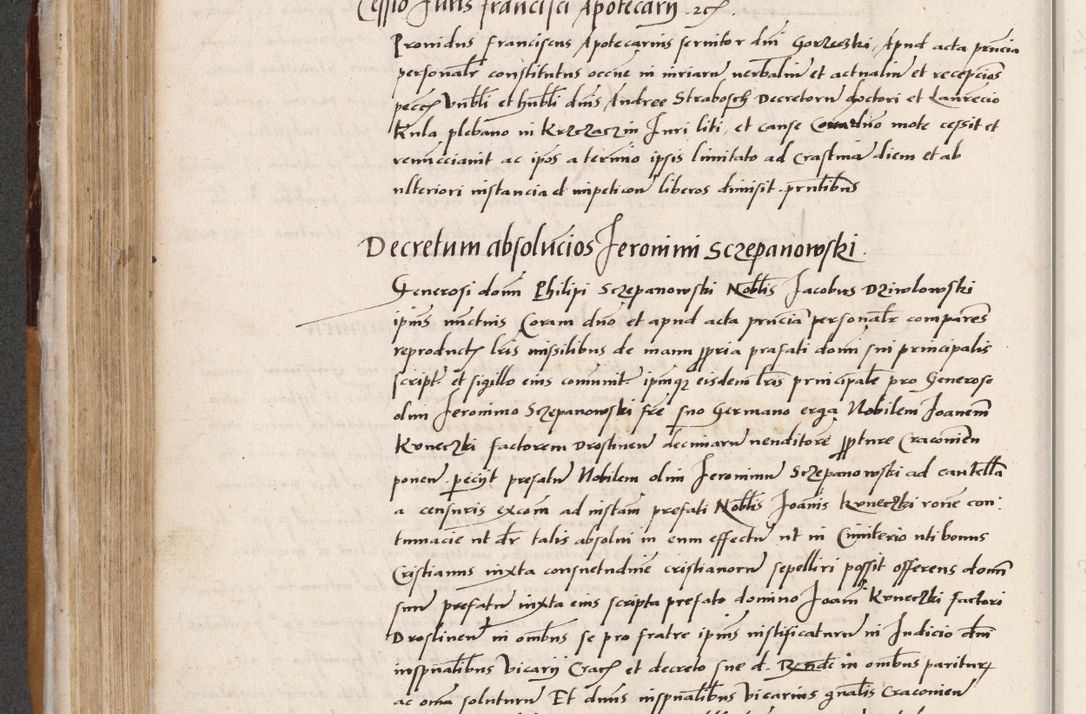 Cessio Juris francisci Apotecarij etc.
Providus franciscus Apotecarius servitor dni Gorzewski Apud acta pñcia
personalr constitutus occñe in iuriarũ verbaliũ et actualiũ et recepciõis
pecc. Vnbli et hnbli dnis Andree Strabosch Decretorũ doctori et Laurẽcio
Kula plebano in Krzczaczin Juri liti, et causẽ Coram dño mote cessit et
renũcciauit ac ipõs a termino ipsis limitato ad crastinã diem et ab
ulteriori instancia et inpeticõe liberos dimisit prñtibus
Decretum absolucios Jeronimi Sczepanowski.
Generosi domi Philipi Sczepanowski Noblis Jacobus Dziwlowski
ipius nunctius Coram dño et apud acta pñcia personalr comparẽs
reproductis lris missilibus de manu ppria prafati domi sui principalis
script. et sigillo eius comunit. ipiusq eisdem lris principalr pro Generoso
olim Jeronimo Sczepanowski fre suo Germano erga Nobilem Joanem
Kuneczki factorem Droslineñ decimarũ venditore ppture Craconieñ
poneñ. pecijt prefatũ Nobilem olim Jeronimũ Sczepanowski ad cautella
a censuris excom ad instañ prefati Noblis Joãnis Kuneczki rone con:
tumacie ut dr talis absolui in eum effectũ ut in Cimiterio uti bonus
Cristianus iuxta consuetudinẽ cristianorũ sepelliri possit offerens domi
suũ prefatũ iuxta eius scripta prefato domino Joani Kuneczki factori
Droslineñ in omibus se pro fratre ipius iustificaturũ in Judicio dni
inspualibus Vicarij Crac. et decreto sue d. Rendẽ in omibus pariturũ
ac omã soluturũ Et dnus inspualibus Vicarius gnalis Craconieñ